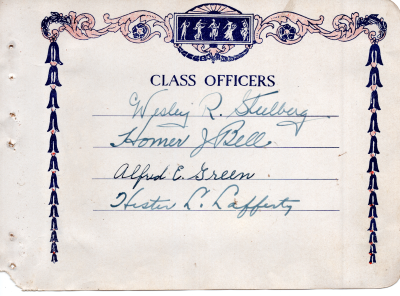 CLASS OFFICERS
Wesley R. Stulberg.
Homer J. Bell.
Alfred E. Green.
Hester L. Lafferty